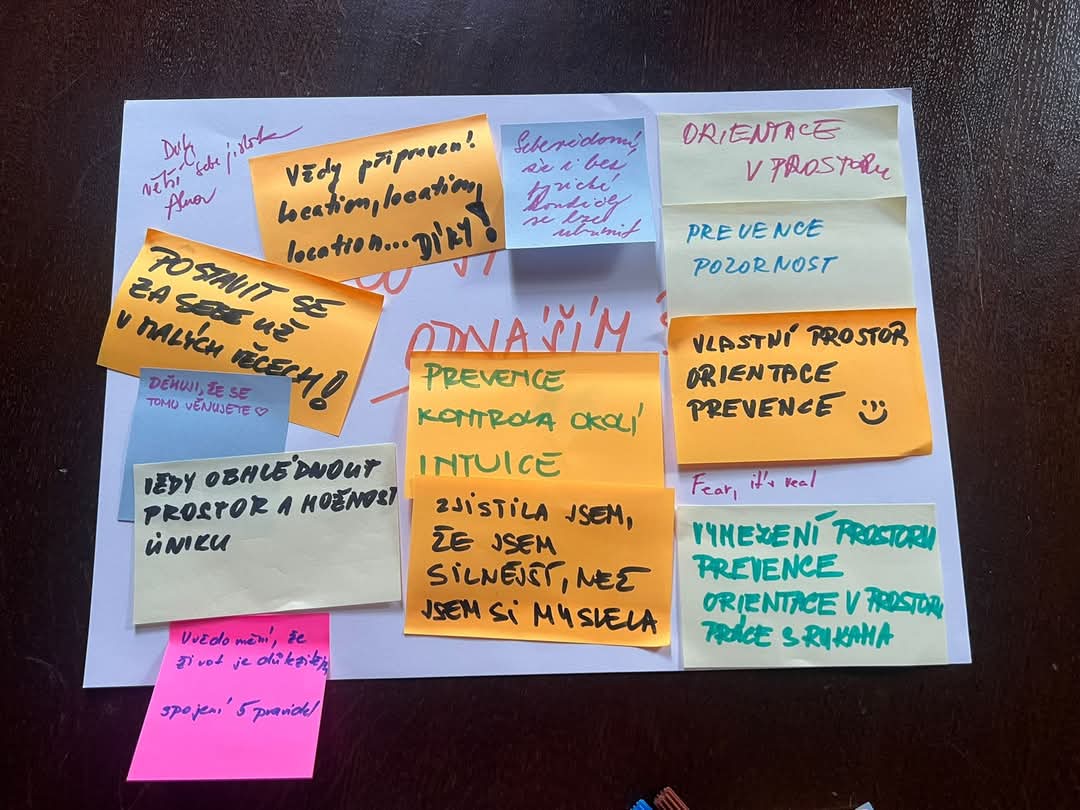 Díky
větší sebejistota
Vždy připraven!
Location, location,
location... DÍKY!
Sebevědomí,
že i bez
fyzické
kondice
se lze
ubránit
ORIENTACE
V PROSTORU
PREVENCE
POZORNOST
CO SI
ODNÁŠÍM
POSTAVIT SE
ZA SEBE UŽ
V MALÝCH VĚCECH!
DĚKUJI, ŽE SE
TOMU VĚNUJETE ♡
PREVENCE
KONTROLA OKOLÍ
INTUICE
VLASTNÍ PROSTOR
ORIENTACE
PREVENCE
VŽDY OBHLÉDNOUT
PROSTOR A MOŽNOST
ÚNIKU
ZJISTILA JSEM,
ŽE JSEM
SILNĚJŠÍ, NEŽ
JSEM SI MYSLELA
Fear, it's real
VYMEZENÍ PROSTORU
PREVENCE
ORIENTACE V PROSTORU
PRÁCE S RUKAMA
Uvědomění, že
život je důležitější,
spojení 5 pravidel